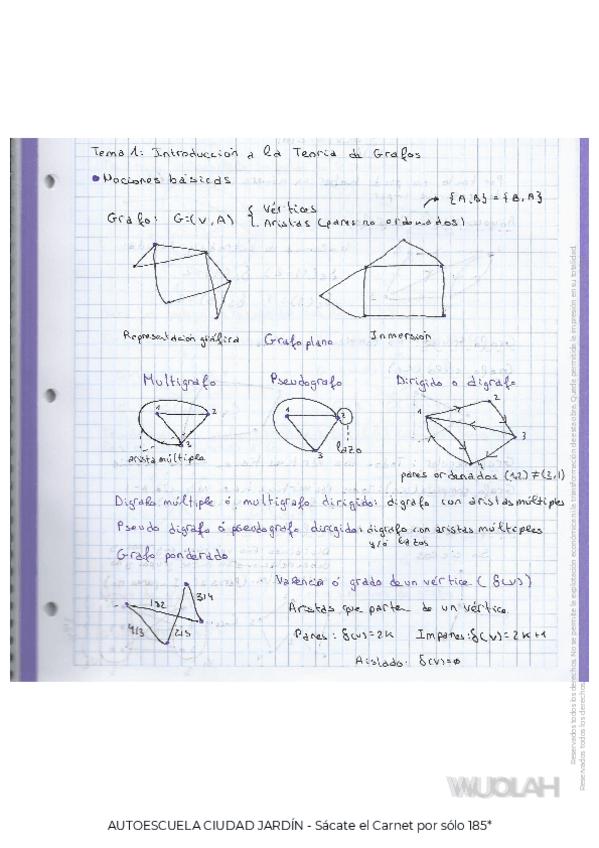 Tema 1: Introducción a la Teoría de Grafos
• Nociones básicas
Grafo: G=(V,A) { Vértices
Aristas (pares no ordenados) → {A,B} = {B,A}
Representación gráfica Grafo plano Inmersión
Multigrafo Pseudografo Dirigido o digrafo
1 2 3
arista múltiple
1 2 3
lazo
1 2 3 4
pares ordenados (1,2) ≠ (2,1)
Digrafo múltiple ó multigrafo dirigido: digrafo con aristas múltiples
Pseudo digrafo ó pseudografo dirigido: digrafo con aristas múltiples
y/ó lazos
Grafo ponderado
132 314 413 215
Valencia ó grado de un vértice (δ(v))
Aristas que parten de un vértice.
Pares: δ(v)=2k Impares: δ(v)=2k+1
Aislado: δ(v)=0
WUOLAH
AUTOESCUELA CIUDAD JARDÍN - Sácate el Carnet por sólo 185*
Reservados todos los derechos. No se permite la explotación económica ni la transformación de esta obra. Queda permitida la impresión en su totalidad.
Reservados todos los derechos.